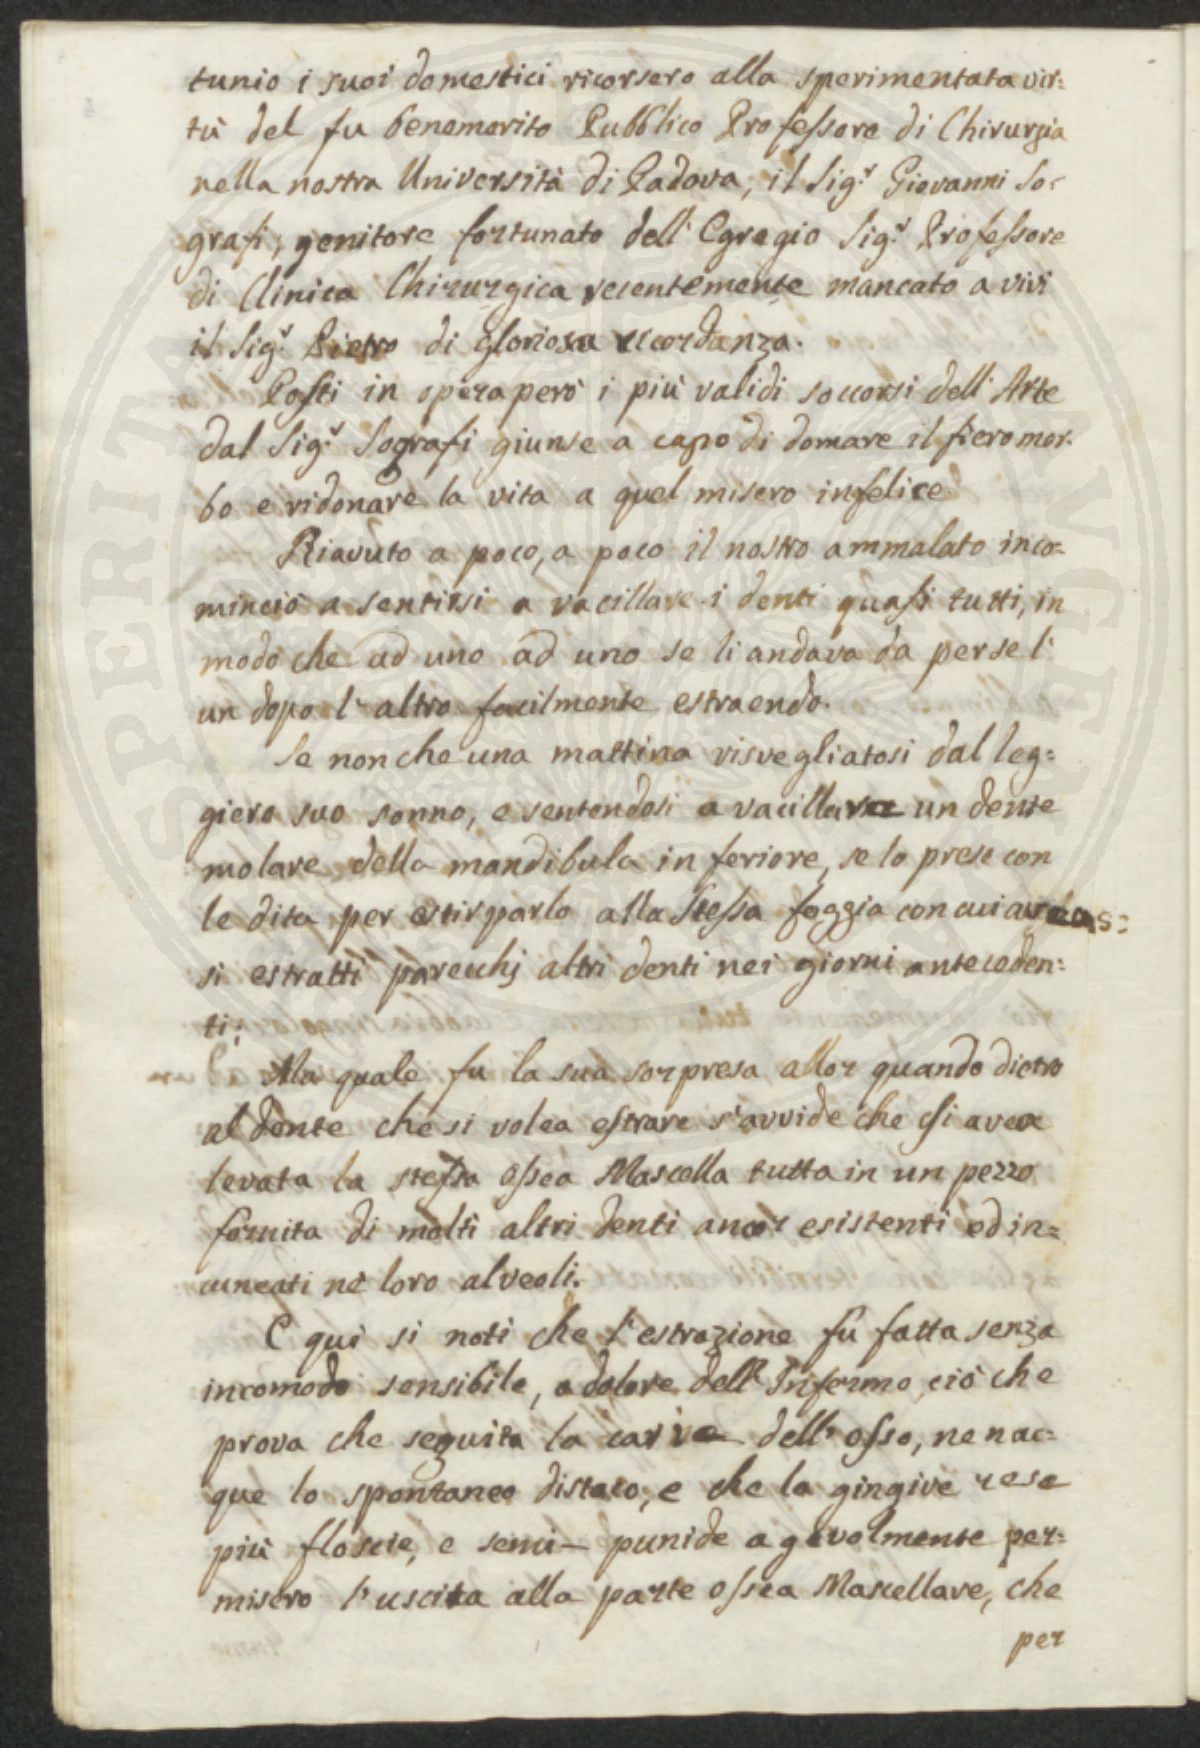 tunio i suoi domestici ricorsero alla sperimentata vir=
tù del fu benemerito Pubblico Professore di Chirurgia
nella nostra Università di Padova, il Sig.r Giovanni So=
grafi, genitore fortunato dell' Egregio Sig.r Professore
di Clinica Chirurgica recentemente mancato a vivi
il Sig.r Pietro di gloriosa ricordanza.
Posti in opera però i più validi soccorsi dell' Arte
dal Sig.r Sografi giunse a capo di domare il fiero mor=
bo e ridonare la vita a quel misero infelice.
Riavuto a poco, a poco il nostro ammalato inco=
minciò a sentirsi a vacillare i denti quasi tutti, in
modo che ad uno ad uno se li andava da per se l'
un dopo l' altro facilmente estraendo.
Se non che una mattina risvegliatosi dal leg=
giero suo sonno, e sentendosi a vacillare un dente
molare della mandibula inferiore, se lo prese con
le dita per estirparlo alla stessa foggia con cui aveas=
si estratti parecchj altri denti nei giorni anteceden=
ti.
Ma quale fu la sua sorpresa allor quando dietro
al dente che si volea estrare s'avvide che si avea
levata la stessa ossea Mascella tutta in un pezzo
fornita di molti altri denti ancor esistenti ed in=
cuneati ne' loro alveoli.
E qui si noti che l'estrazione fu fatta senza
incomodo sensibile, o dolore dell' Infermo, ciò che
prova che seguita la carie dell' osso, ne nac=
que lo spontaneo distaco, e che la gingive rese
più floscie, e semi- punide agevolmente per=
misero l'uscita alla parte ossea Mascellare, che
per
SPERITA
AVGENT